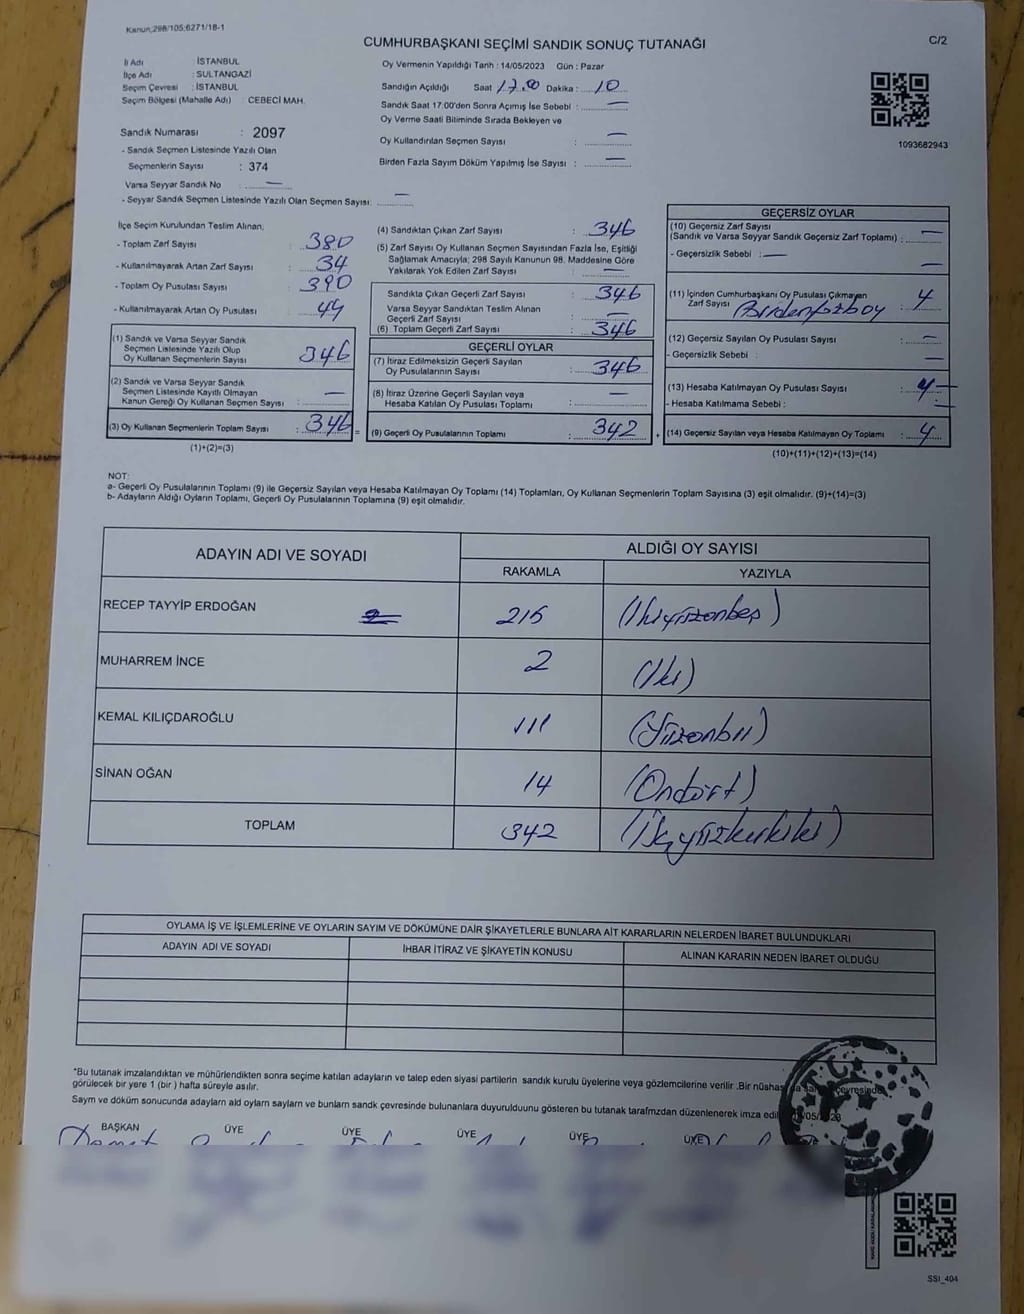 Kanun;298/105;6271/18-1
CUMHURBAŞKANI SEÇİMİ SANDIK SONUÇ TUTANAĞI
C/2
İl Adı İSTANBUL
İlçe Adı : SULTANGAZİ
Seçim Çevresi : İSTANBUL
Seçim Bölgesi (Mahalle Adı) : CEBECİ MAH.
Sandık Numarası : 2097
- Sandık Seçmen Listesinde Yazılı Olan
Seçmenlerin Sayısı : 374
Varsa Seyyar Sandık No : —
- Seyyar Sandık Seçmen Listesinde Yazılı Olan Seçmen Sayısı: —
Oy Vermenin Yapıldığı Tarih : 14/05/2023 Gün : Pazar
Sandığın Açıldığı Saat 17.00 Dakika : 10
Sandık Saat 17:00'den Sonra Açımış İse Sebebi : —
Oy Verme Saati Bitiminde Sırada Bekleyen ve
Oy Kullandırılan Seçmen Sayısı : —
Birden Fazla Sayım Döküm Yapılmış İse Sayısı : —
1093682943
İlçe Seçim Kurulundan Teslim Alınan,
- Toplam Zarf Sayısı : 380
- Kullanılmayarak Artan Zarf Sayısı : 34
- Toplam Oy Pusulası Sayısı : 390
- Kullanılmayarak Artan Oy Pusulası : 44
(1) Sandık ve Varsa Seyyar Sandık
Seçmen Listesinde Yazılı Olup
Oy Kullanan Seçmenlerin Sayısı : 346
(2) Sandık ve Varsa Seyyar Sandık
Seçmen Listesinde Kayıtlı Olmayan
Kanun Gereği Oy Kullanan Seçmen Sayısı : —
(3) Oy Kullanan Seçmenlerin Toplam Sayısı : 346 =
(1)+(2)=(3)
(4) Sandıktan Çıkan Zarf Sayısı : 346
(5) Zarf Sayısı Oy Kullanan Seçmen Sayısından Fazla İse, Eşitliği
Sağlamak Amacıyla; 298 Sayılı Kanunun 98. Maddesine Göre
Yakılarak Yok Edilen Zarf Sayısı : —
Sandıkta Çıkan Geçerli Zarf Sayısı : 346
Varsa Seyyar Sandıktan Teslim Alınan
Geçerli Zarf Sayısı : —
(6) Toplam Geçerli Zarf Sayısı : 346
GEÇERLİ OYLAR
(7) İtiraz Edilmeksizin Geçerli Sayılan
Oy Pusulalarının Sayısı : 346
(8) İtiraz Üzerine Geçerli Sayılan veya
Hesaba Katılan Oy Pusulası Toplamı : —
(9) Geçerli Oy Pusulalarının Toplamı : 342 +
GEÇERSİZ OYLAR
(10) Geçersiz Zarf Sayısı
(Sandık ve Varsa Seyyar Sandık Geçersiz Zarf Toplamı) : —
- Geçersizlik Sebebi : —
(11) İçinden Cumhurbaşkanı Oy Pusulası Çıkmayan
Zarf Sayısı : 4
(12) Geçersiz Sayılan Oy Pusulası Sayısı : —
- Geçersizlik Sebebi : —
(13) Hesaba Katılmayan Oy Pusulası Sayısı : 4 —
- Hesaba Katılmama Sebebi : —
(14) Geçersiz Sayılan veya Hesaba Katılmayan Oy Toplamı : 4
(10)+(11)+(12)+(13)=(14)
NOT:
a- Geçerli Oy Pusulalarının Toplamı (9) ile Geçersiz Sayılan veya Hesaba Katılmayan Oy Toplamı (14) Toplamları, Oy Kullanan Seçmenlerin Toplam Sayısına (3) eşit olmalıdır. (9)+(14)=(3)
b- Adayların Aldığı Oyların Toplamı, Geçerli Oy Pusulalarının Toplamına (9) eşit olmalıdır.
ADAYIN ADI VE SOYADI ALDIĞI OY SAYISI
RAKAMLA YAZIYLA
RECEP TAYYİP ERDOĞAN 215 (İkiyüzonbeş)
MUHARREM İNCE 2 (İki)
KEMAL KILIÇDAROĞLU 111 (Yüzonbir)
SİNAN OĞAN 14 (Ondört)
TOPLAM 342 (Üçyüzkırkiki)
OYLAMA İŞ VE İŞLEMLERİNE VE OYLARIN SAYIM VE DÖKÜMÜNE DAİR ŞİKAYETLERLE BUNLARA AİT KARARLARIN NELERDEN İBARET BULUNDUKLARI
ADAYIN ADI VE SOYADI İHBAR İTİRAZ VE ŞİKAYETİN KONUSU ALINAN KARARIN NEDEN İBARET OLDUĞU
*Bu tutanak imzalandıktan ve mühürlendikten sonra seçime katılan adayların ve talep eden siyasi partilerin sandık kurulu üyelerine veya gözlemcilerine verilir .Bir nüshası da sandık çevresinde
görülecek bir yere 1 (bir ) hafta süreyle asılır.
Saym ve döküm sonucunda adayların ald oylarn sayların ve bunların sandk çevresinde bulunanlara duyurulduunu gösteren bu tutanak tarafmzdan düzenlenerek imza edil
BAŞKAN ÜYE ÜYE ÜYE ÜYE ÜYE
SSI_404